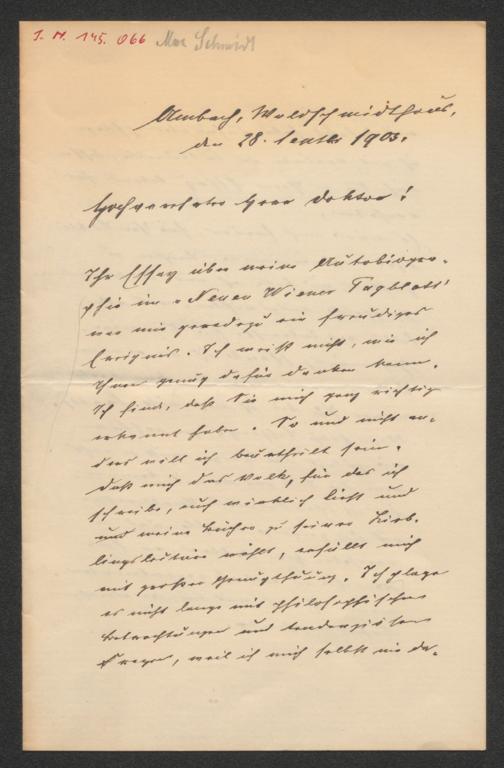 I. N. 145.066 Max Schmidt
Ambach, Waldschmidthaus,
den 28. Septbr 1903.
Hochverehrter Herr Doktor!
Ihr Essay über meine Autobiogra-
phie im „Neuen Wiener Tagblatt"
war mir geradezu ein freudiges
Ereignis. Ich weiß nicht, wie ich
Ihnen genug dafür danken kann.
Ich finde, daß Sie mich ganz richtig
erkannt haben. So und nicht an-
ders will ich beurtheilt sein.
Daß mich das Volk, für das ich
schreibe, auch wirklich liest und
und meine Bücher zu seiner Lieb-
lingslektüre wählt, erfüllt mich
mit großer Genugthuung. Ich plage
es nicht lange mit philosophischen
Betrachtungen und tendenziösen
Fragen, weil ich mich selbst nie da-